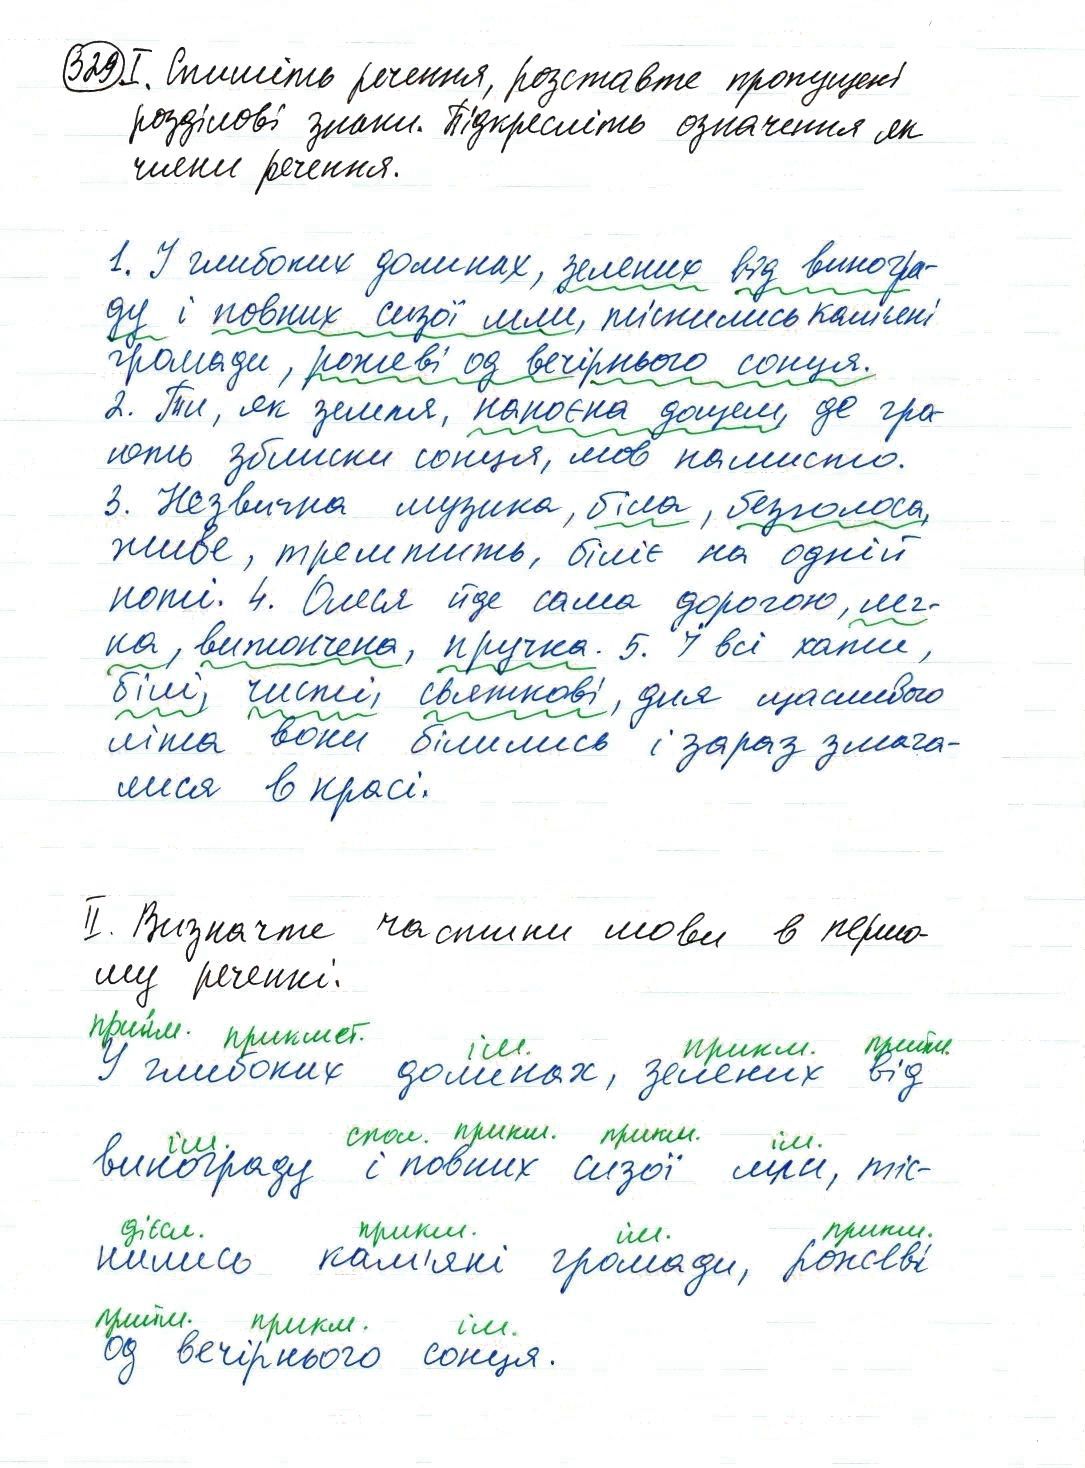 329 I. Спишіть речення, розставте пропущені
розділові знаки. Підкресліть означення як
члени речення.
1. У глибоких долинах, зелених від виногра-
ду і повних сизої мли, тіснились кам'яні
громади, рожеві од вечірнього сонця.
2. Ти, як земля, напоєна дощем, де гра-
ють зблиски сонця, мов намисто.
3. Незвична музика, біла, безголоса,
живе, тремтить, біліє на одній
ноті. 4. Олеся йде сама дорогою, лег-
ка, витончена, пружка. 5. І всі хати,
білі, чисті, святкові, для щасливого
літа вони білились і зараз змага-
лися в красі.
II. Визначте частини мови в першо-
му реченні.
прийм. прикмет. ім. прикм. прийм.
У глибоких долинах, зелених від
ім. спол. прикм. прикм. ім.
винограду і повних сизої мли, тіс-
дієсл. прикм. ім. прикм.
нились кам'яні громади, рожеві
прийм. прикм. ім.
од вечірнього сонця.